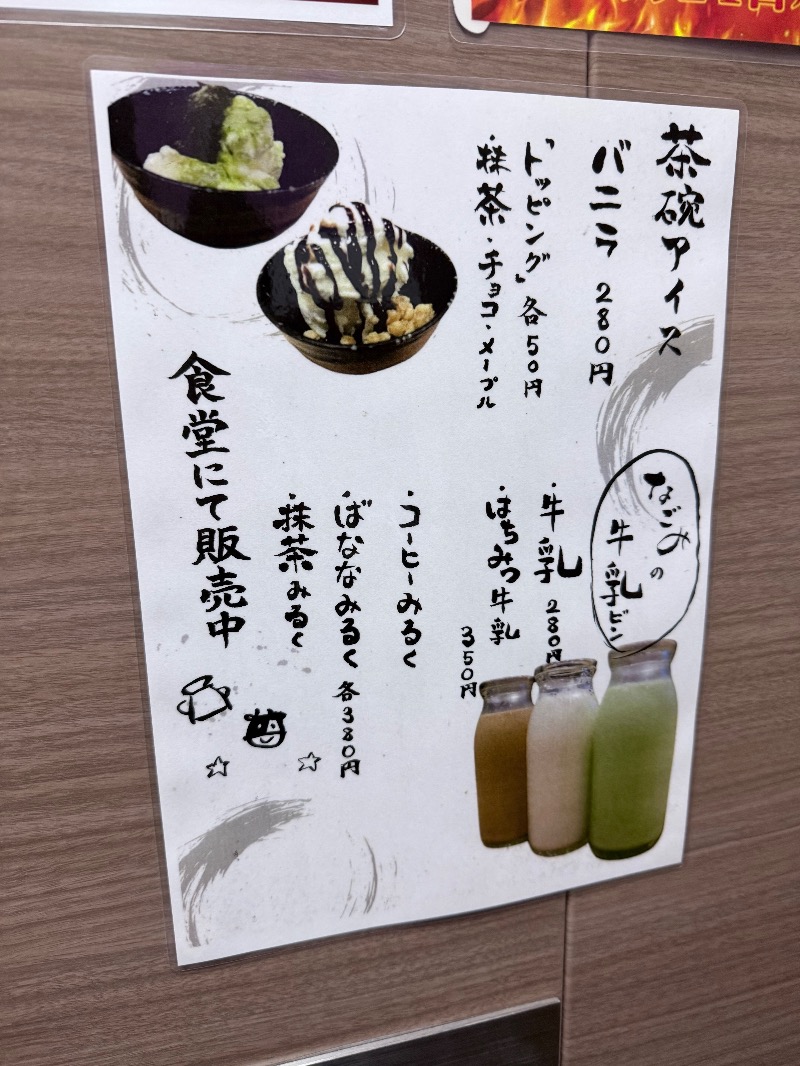 茶碗アイス
バニラ 280円
「トッピング」各50円
・抹茶・チョコ・メープル
なごみの
牛乳ビン
・牛乳 280円
・はちみつ牛乳
350円
・コーヒーみるく
・ばななみるく 各380円
・抹茶みるく
食堂にて販売中